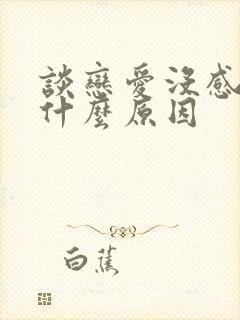 談戀愛沒感
什麼原因
白蕉